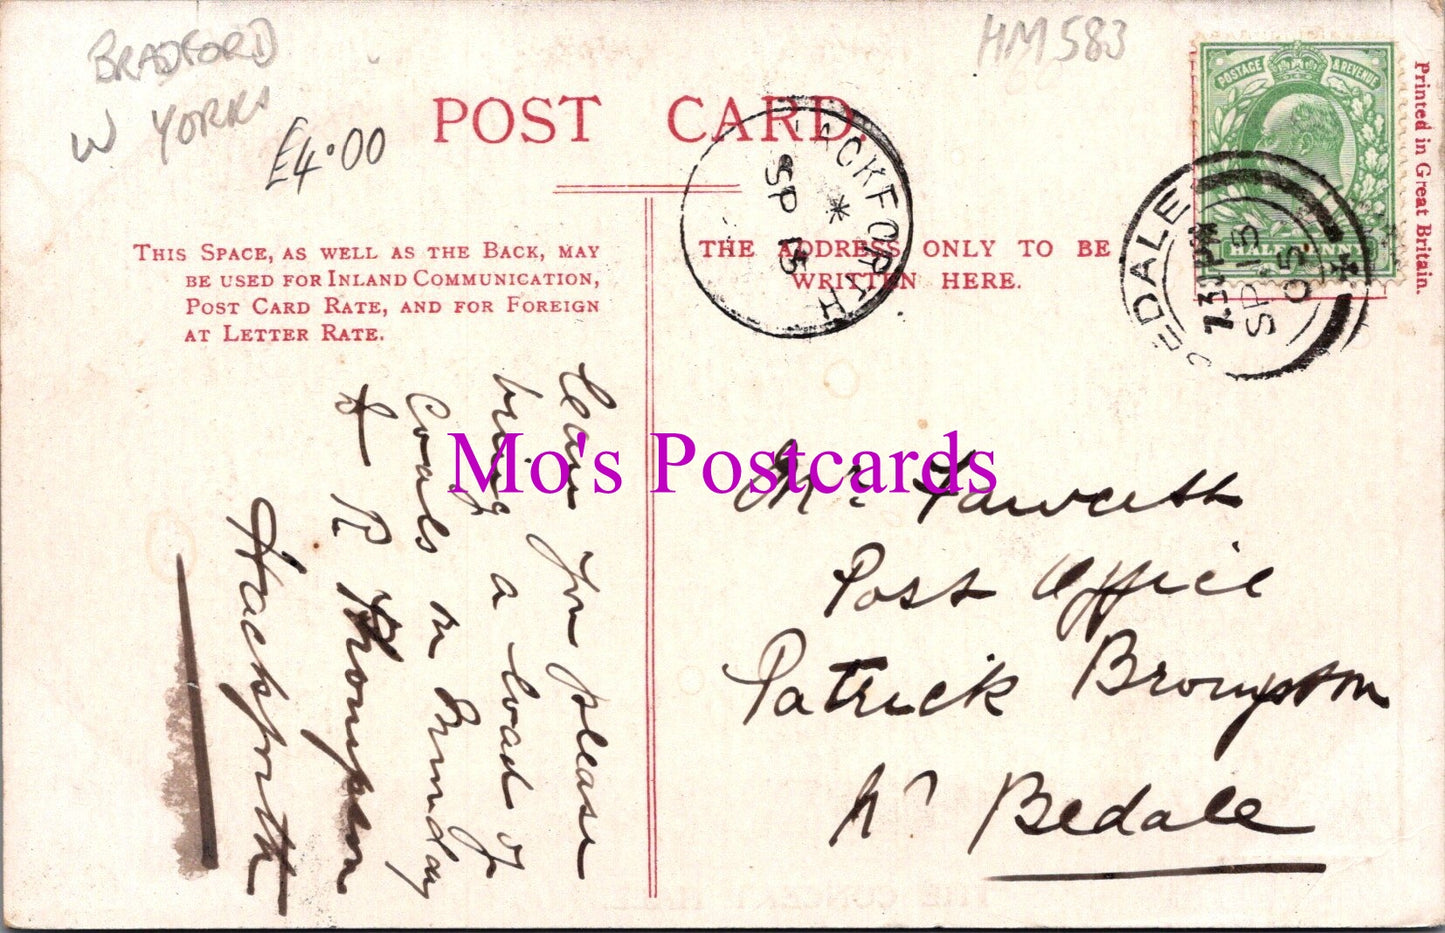 BRADFORD
W YORKS
£4.00
HM583
POST CARD.
THIS SPACE, AS WELL AS THE BACK, MAY
BE USED FOR INLAND COMMUNICATION,
POST CARD RATE, AND FOR FOREIGN
AT LETTER RATE.
THE ADDRESS ONLY TO BE
WRITTEN HERE.
HACKFORTH
*
SP 15
POSTAGE & REVENUE
HALFPENNY
EDALE
7.30PM
SP 15
05
Printed in Great Britain.
Can you please
bring a load of
Coals on Munday
& R Thompson
Hackforth
Mo's Postcards
Mr Fawcett
Post Office
Patrick Brompton
Nr Bedale
THE CONCERT HALL